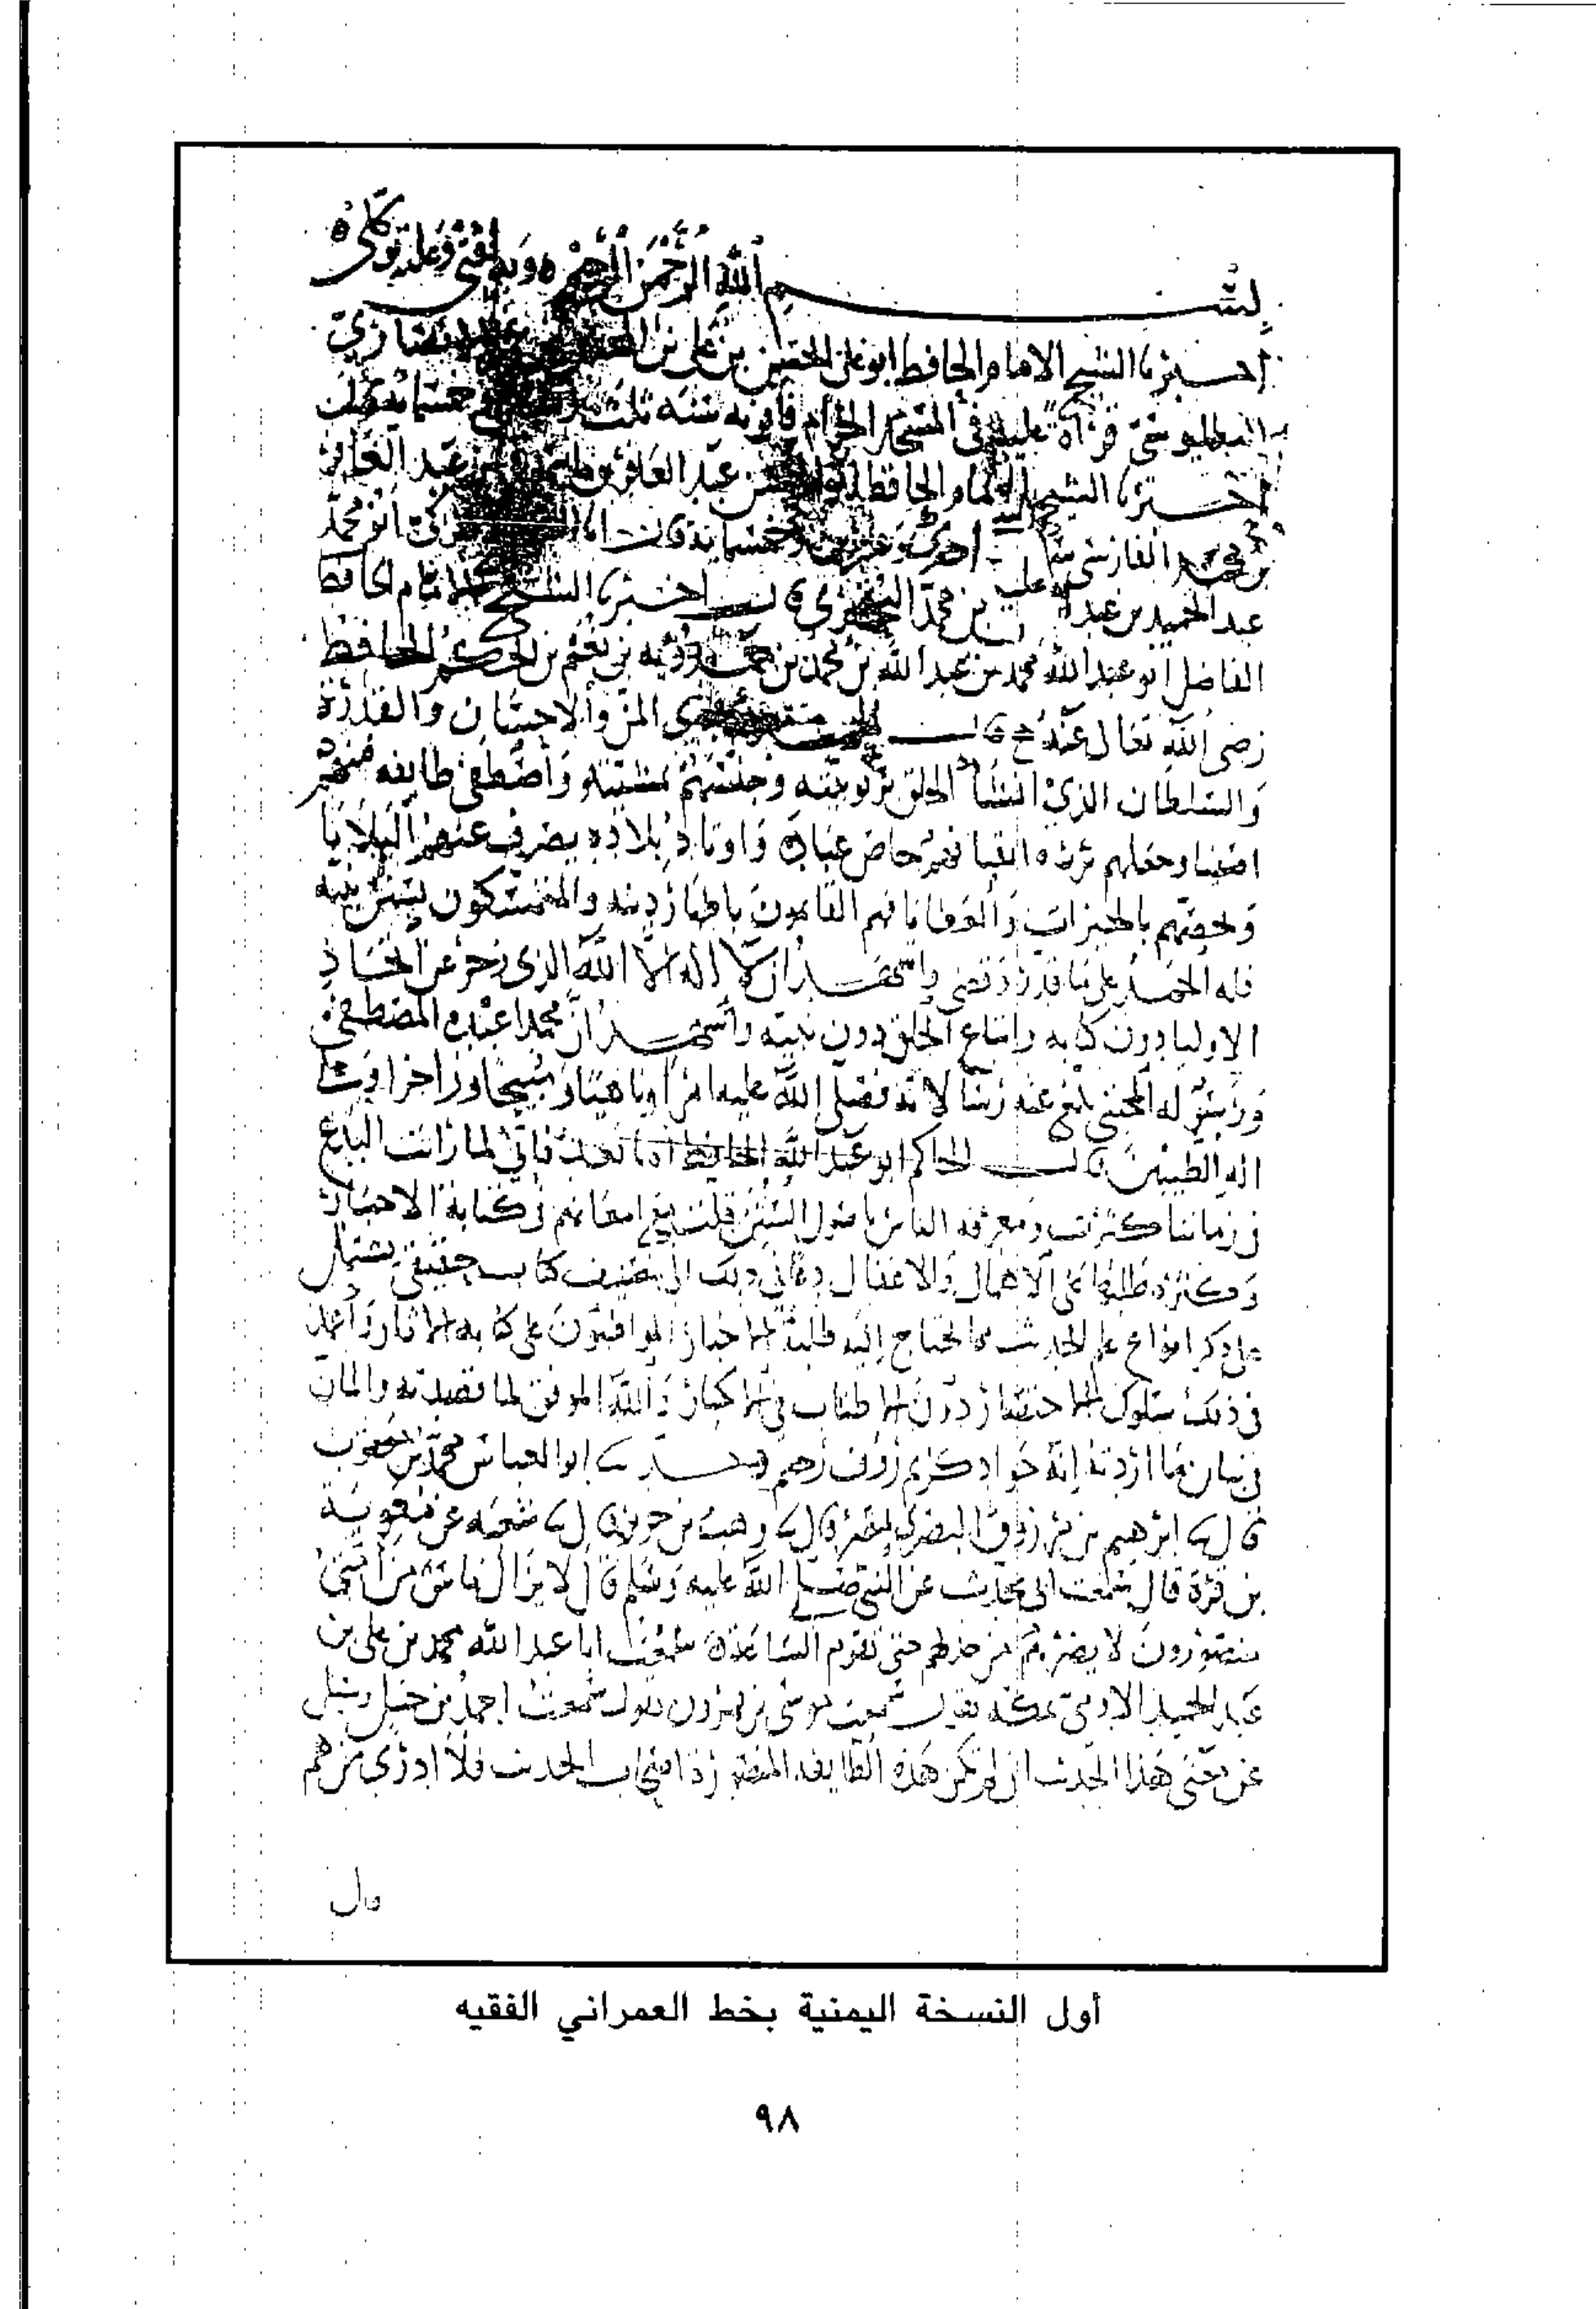 بسم الله الرحمن الرحيم وبه ثقتي وعليه توكلي
اخبرنا الشيخ الامام الحافظ ابو علي الحسين بن علي بن الانصاري
البطليوسي قراة عليه في المسجد الحرام فاقر به سنه ثلث وخمسمايه قلت
اخبرنا الشيخ الامام الحافظ ابو الحسن عبد الغافر بن عبد الغافر
بن محمد الفارسي سنه احدى وعشرين وخمسمايه قال انا ابو محمد
عبد الحميد بن عبد الله بن محمد قال اخبرنا الشيخ الامام الحافظ
الفاضل ابو عبد الله محمد بن عبد الله بن محمد بن حمدويه بن نعيم بن الحكم الحافظ
رضي الله تعالى عنه قال الحمد لله ذي المن والاحسان والقدرة
والسلطان الذي انشأ الخلق بربوبيته وجنسهم بمشيئته واصطفى طايفه منهم
اصفيا وجعلهم بررة اتقيا فهم خاص عباده واوتاد بلاده يصرف عنهم البلايا
ويخصهم بالخيرات والعطايا فهم القايمون باظهار دينه والمتمسكون بسنن نبيه
فله الحمد على ما قدر وقضى واشهد ان لا اله الا الله الذي زجر عن اتخاذ
الاوليا دون كتابه واتباع الخلق دون نبيه واشهد ان محمدا عبده المصطفى
ورسوله المجتبى بلغ عنه رسالاته فصلى الله عليه امرا وناهيا ومبيحا وزاجرا وعلى
اله الطيبين قال الحاكم ابو عبد الله الحافظ اما بعد فاني لما رايت البدع
في زماننا كثرت ومعرفه الناس باصول السنن قلت مع امعانهم في كتابة الاخبار
وكثرة طلبها على الاهمال والاغفال دعاني ذلك الى تصنيف كتاب خفيف يشتمل
على ذكر انواع علم الحديث مما يحتاج اليه طلبة الاخبار المواظبون على كتابه الاثار واعتمد
في ذلك سلوك الاختصار دون الاطناب في الاكثار والله الموفق لما قصدته والمان
في بيان ما اردته انه جواد كريم روف رحيم حدثنا ابو العباس محمد بن يعقوب
قال نا ابرهيم بن مرزوق البصري بمصر قال نا وهب بن جرير قال نا شعبه عن معوية
بن قرة قال سمعت ابي يحدث عن النبي صلى الله عليه وسلم قال لا يزال ناس من امتي
منصورون لا يضرهم من خذلهم حتى تقوم الساعة سمعت ابا عبد الله محمد بن علي بن
عبد الحميد الادمي بمكه يقول سمعت موسى بن هرون يقول سمعت احمد بن حنبل وسيل
عن معنى هذا الحديث ان لم تكن هذه الطايفه المنصورة اصحاب الحديث فلا ادري من هم
قال
أول النسخة اليمنية بخط العمراني الفقيه
٩٨